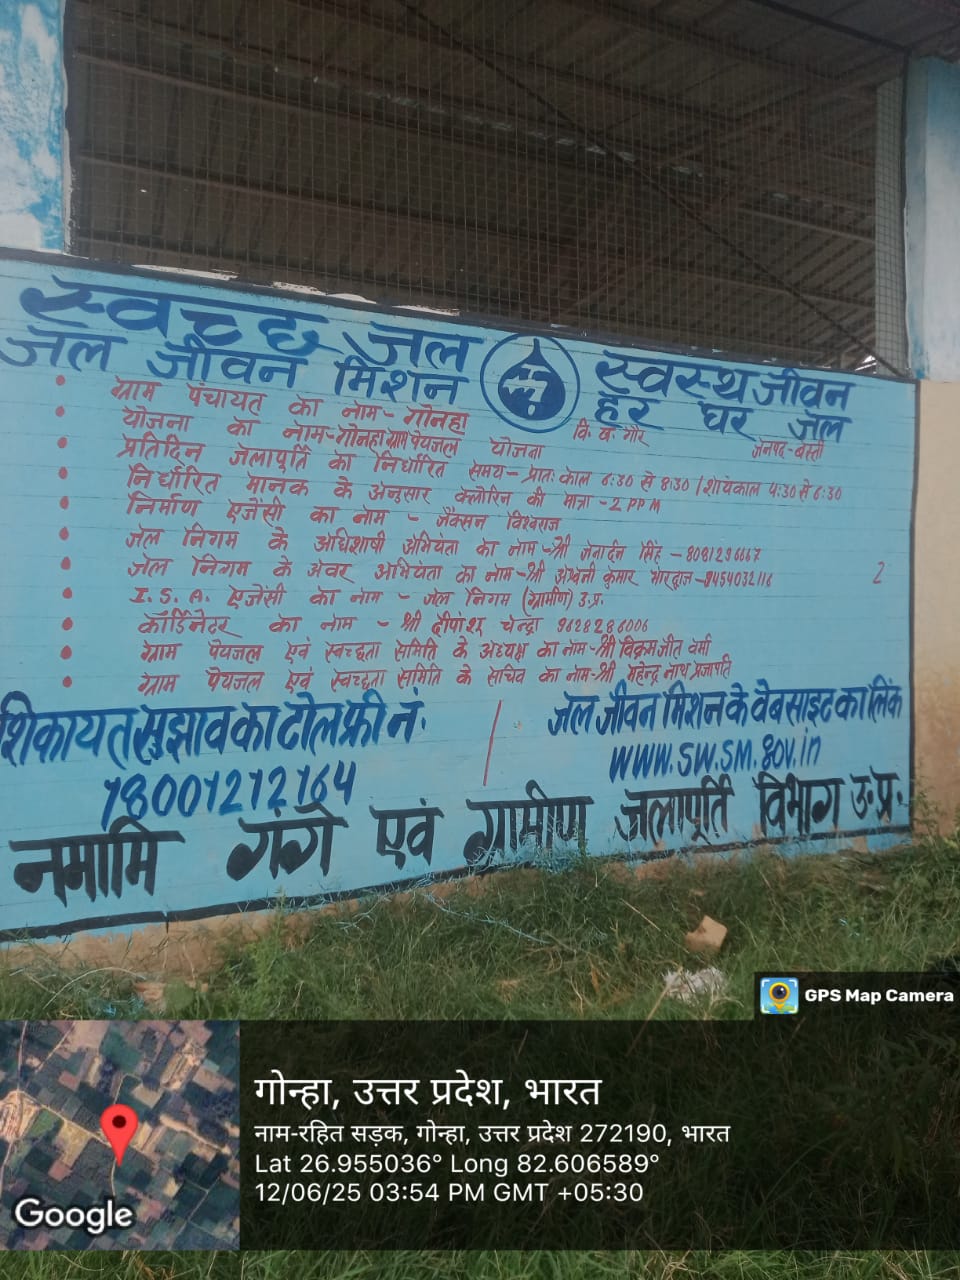 स्वच्छ जल स्वस्थ जीवन
जल जीवन मिशन हर घर जल
ग्राम पंचायत का नाम- गोनहा वि. ख. गौर जनपद-बस्ती
योजना का नाम-गोनहा ग्राम पेयजल योजना
प्रतिदिन जलापूर्ति का निर्धारित समय- प्रातः काल 6:30 से 8:30 / शायंकाल 4:30 से 6:30
निर्धारित मानक के अनुसार क्लोरिन की मात्रा -2 PPM
निर्माण एजेंसी का नाम - जैक्सन विश्वराज
जल निगम के अधिशाषी अभियंता का नाम -श्री जनार्दन सिंह - 8081296667
जल निगम के अवर अभियंता का नाम-श्री अश्वनी कुमार भारद्वाज -9454032116 2
I. S. A. एजेंसी का नाम - जल निगम (ग्रामीण) उ.प्र.
कॉर्डिनेटर का नाम - श्री दीपांशू चन्द्रा 9628286006
ग्राम पेयजल एवं स्वच्छता समिति के अध्यक्ष का नाम-श्री विक्रमजीत वर्मा
ग्राम पेयजल एवं स्वच्छता समिति के सचिव का नाम-श्री महेन्द्र नाथ प्रजापति
शिकायत सुझाव का टोल फ्री नं. / जल जीवन मिशन के वेबसाइट का लिंक
18001212164 www.sw.sm.gov.in
नमामि गंगे एवं ग्रामीण जलापूर्ति विभाग उ.प्र.
GPS Map Camera
गोन्हा, उत्तर प्रदेश, भारत
नाम-रहित सड़क, गोन्हा, उत्तर प्रदेश 272190, भारत
Lat 26.955036° Long 82.606589°
12/06/25 03:54 PM GMT +05:30
Google